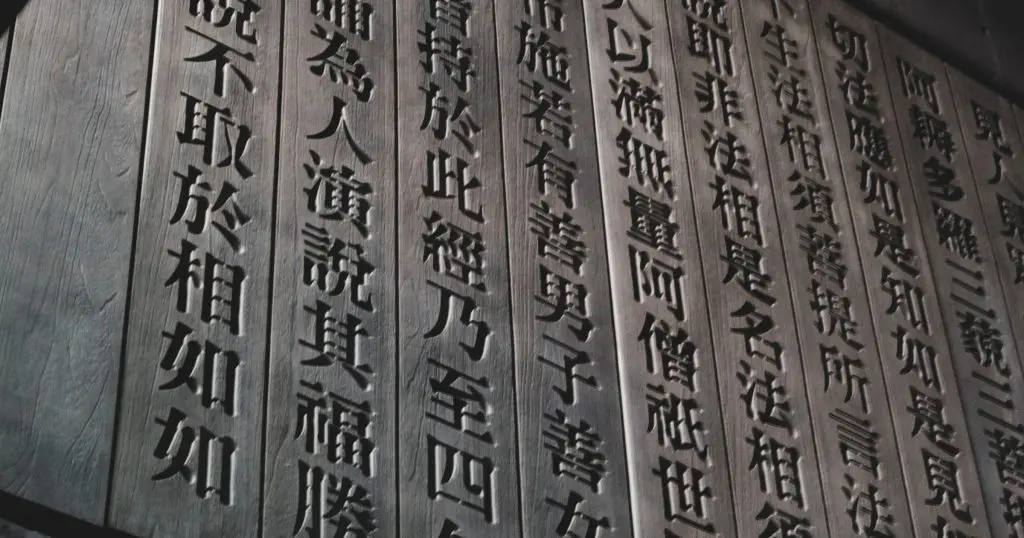 見人見
阿耨多羅三藐三菩
切法應如是知如是見如
不生法相須菩提所言法
說卽非法相是名法相須
人以滿無量阿僧祇世
布施若有善男子善女
者持於此經乃至四
誦為人演說其福勝
說不取於相如如